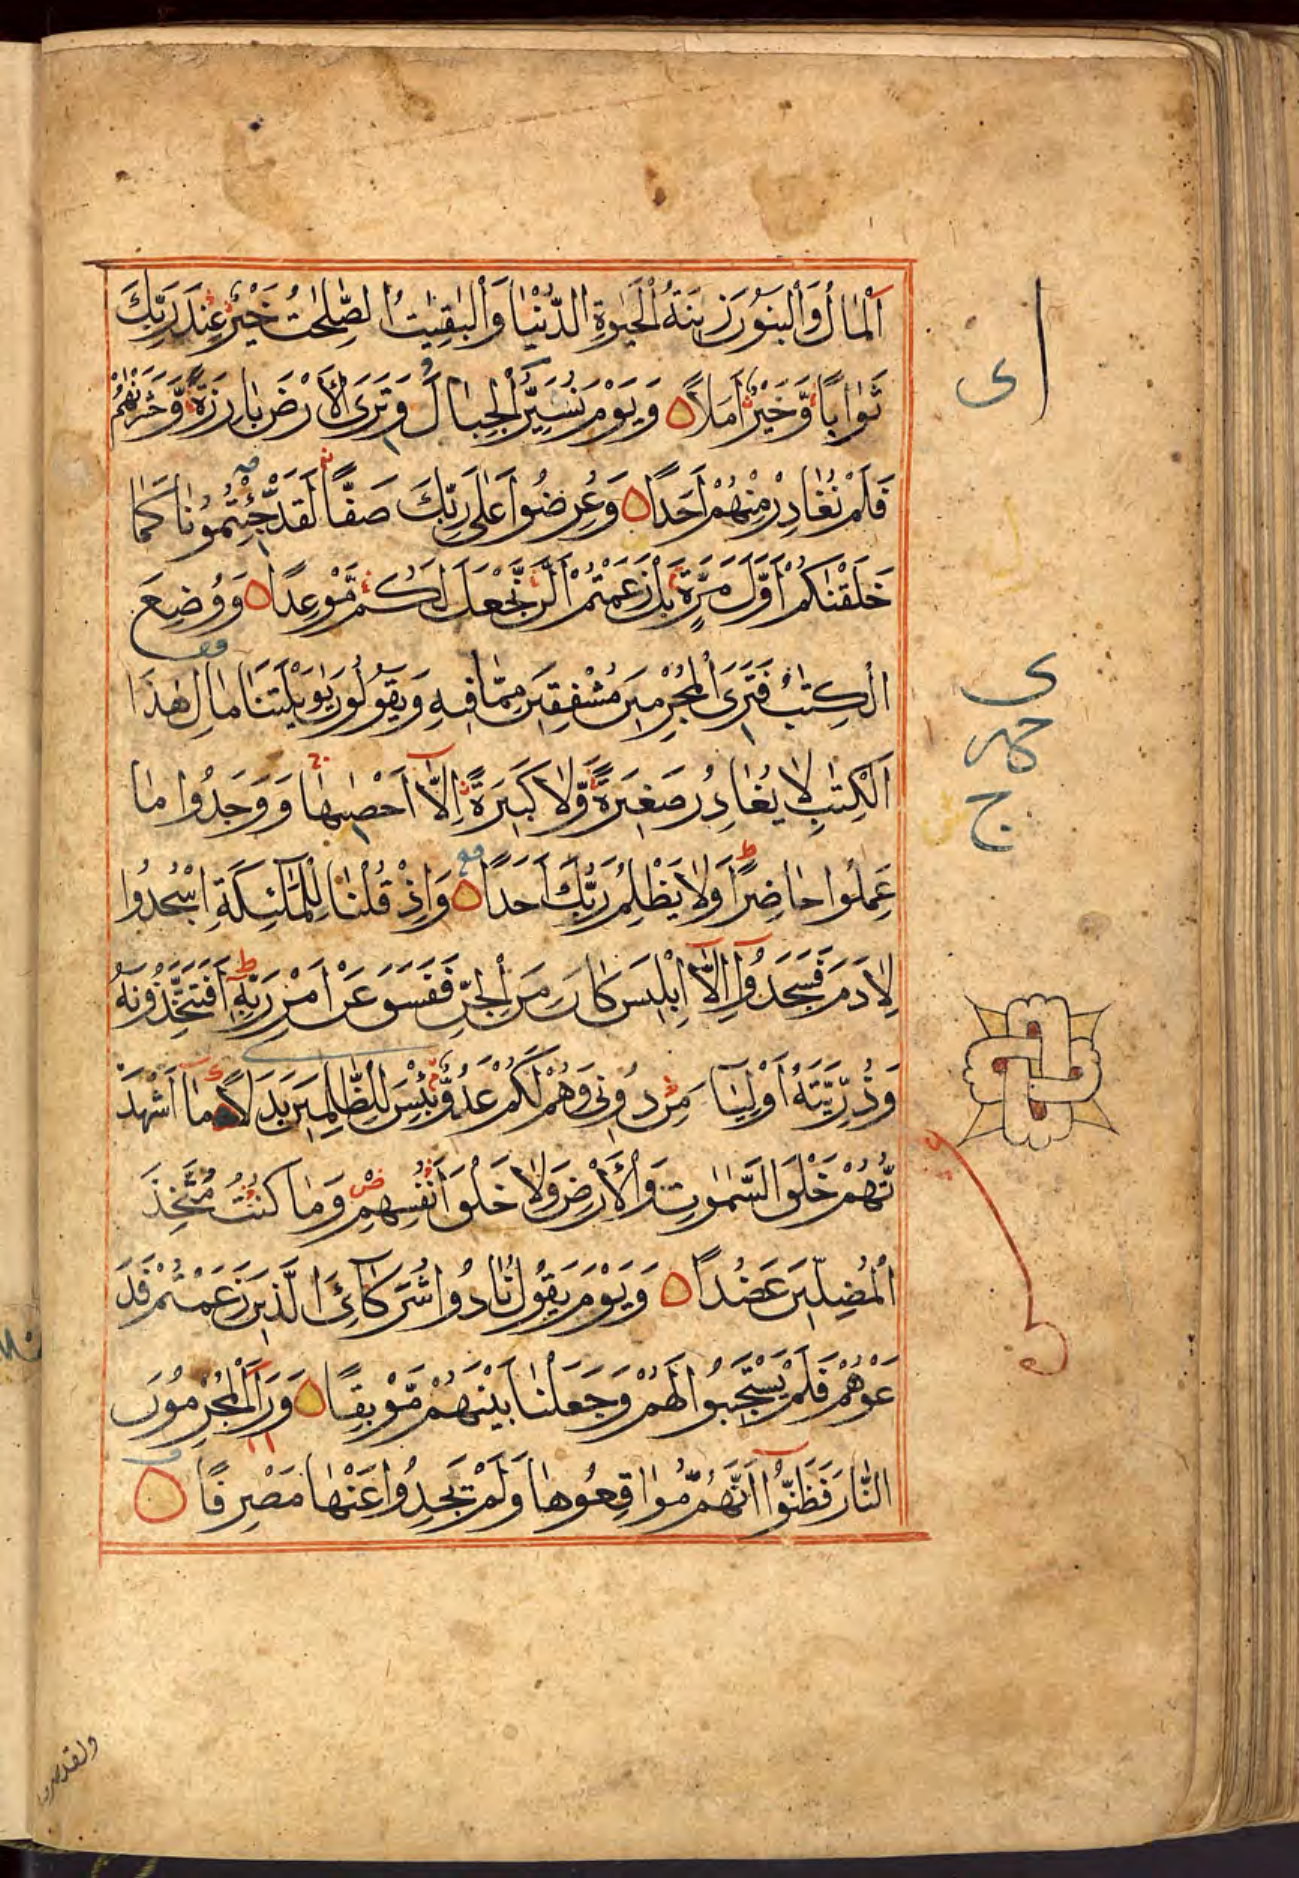 اَلْمَالُ وَالْبَنُونَ زِينَةُ الْحَيٰوةِ الدُّنْيَا وَالْبٰقِيٰتُ الصّٰلِحٰتُ خَيْرٌ عِنْدَ رَبِّكَ
ثَوَابًا وَّخَيْرٌ اَمَلًا وَيَوْمَ نُسَيِّرُ الْجِبَالَ وَتَرَى الْاَرْضَ بَارِزَةً وَّحَشَرْنٰهُمْ
فَلَمْ نُغَادِرْ مِنْهُمْ اَحَدًا وَعُرِضُوا عَلٰى رَبِّكَ صَفًّا لَقَدْ جِئْتُمُونَا كَمَا
خَلَقْنٰكُمْ اَوَّلَ مَرَّةٍ بَلْ زَعَمْتُمْ اَلَّنْ نَّجْعَلَ لَكُمْ مَّوْعِدًا وَوُضِعَ
الْكِتٰبُ فَتَرَى الْمُجْرِمِينَ مُشْفِقِينَ مِمَّا فِيهِ وَيَقُولُونَ يٰوَيْلَتَنَا مَالِ هٰذَا
اَلْكِتٰبِ لَا يُغَادِرُ صَغِيرَةً وَّلَا كَبِيرَةً اِلَّا اَحْصٰيهَا وَوَجَدُوا مَا
عَمِلُوا حَاضِرًا وَلَا يَظْلِمُ رَبُّكَ اَحَدًا وَاِذْ قُلْنَا لِلْمَلٰٓئِكَةِ اسْجُدُوا
لِاٰدَمَ فَسَجَدُوٓا اِلَّآ اِبْلِيسَ كَانَ مِنَ الْجِنِّ فَفَسَقَ عَنْ اَمْرِ رَبِّهٖ اَفَتَتَّخِذُونَهُ
وَذُرِّيَّتَهُ اَوْلِيَآ مِنْ دُونِى وَهُمْ لَكُمْ عَدُوٌّ بِئْسَ لِلظّٰلِمِينَ بَدَلًا مَآ اَشْهَدْ
تُّهُمْ خَلْقَ السَّمٰوٰتِ وَالْاَرْضِ وَلَا خَلْقَ اَنْفُسِهِمْ وَمَا كُنْتُ مُتَّخِذَ
الْمُضِلِّينَ عَضُدًا وَيَوْمَ يَقُولُ نَادُوا شُرَكَآئِىَ الَّذِينَ زَعَمْتُمْ فَدَ
عَوْهُمْ فَلَمْ يَسْتَجِيبُوا لَهُمْ وَجَعَلْنَا بَيْنَهُمْ مَّوْبِقًا وَرَاَ الْمُجْرِمُونَ
النَّارَ فَظَنُّوٓا اَنَّهُمْ مُّوَاقِعُوهَا وَلَمْ يَجِدُوا عَنْهَا مَصْرِفًا